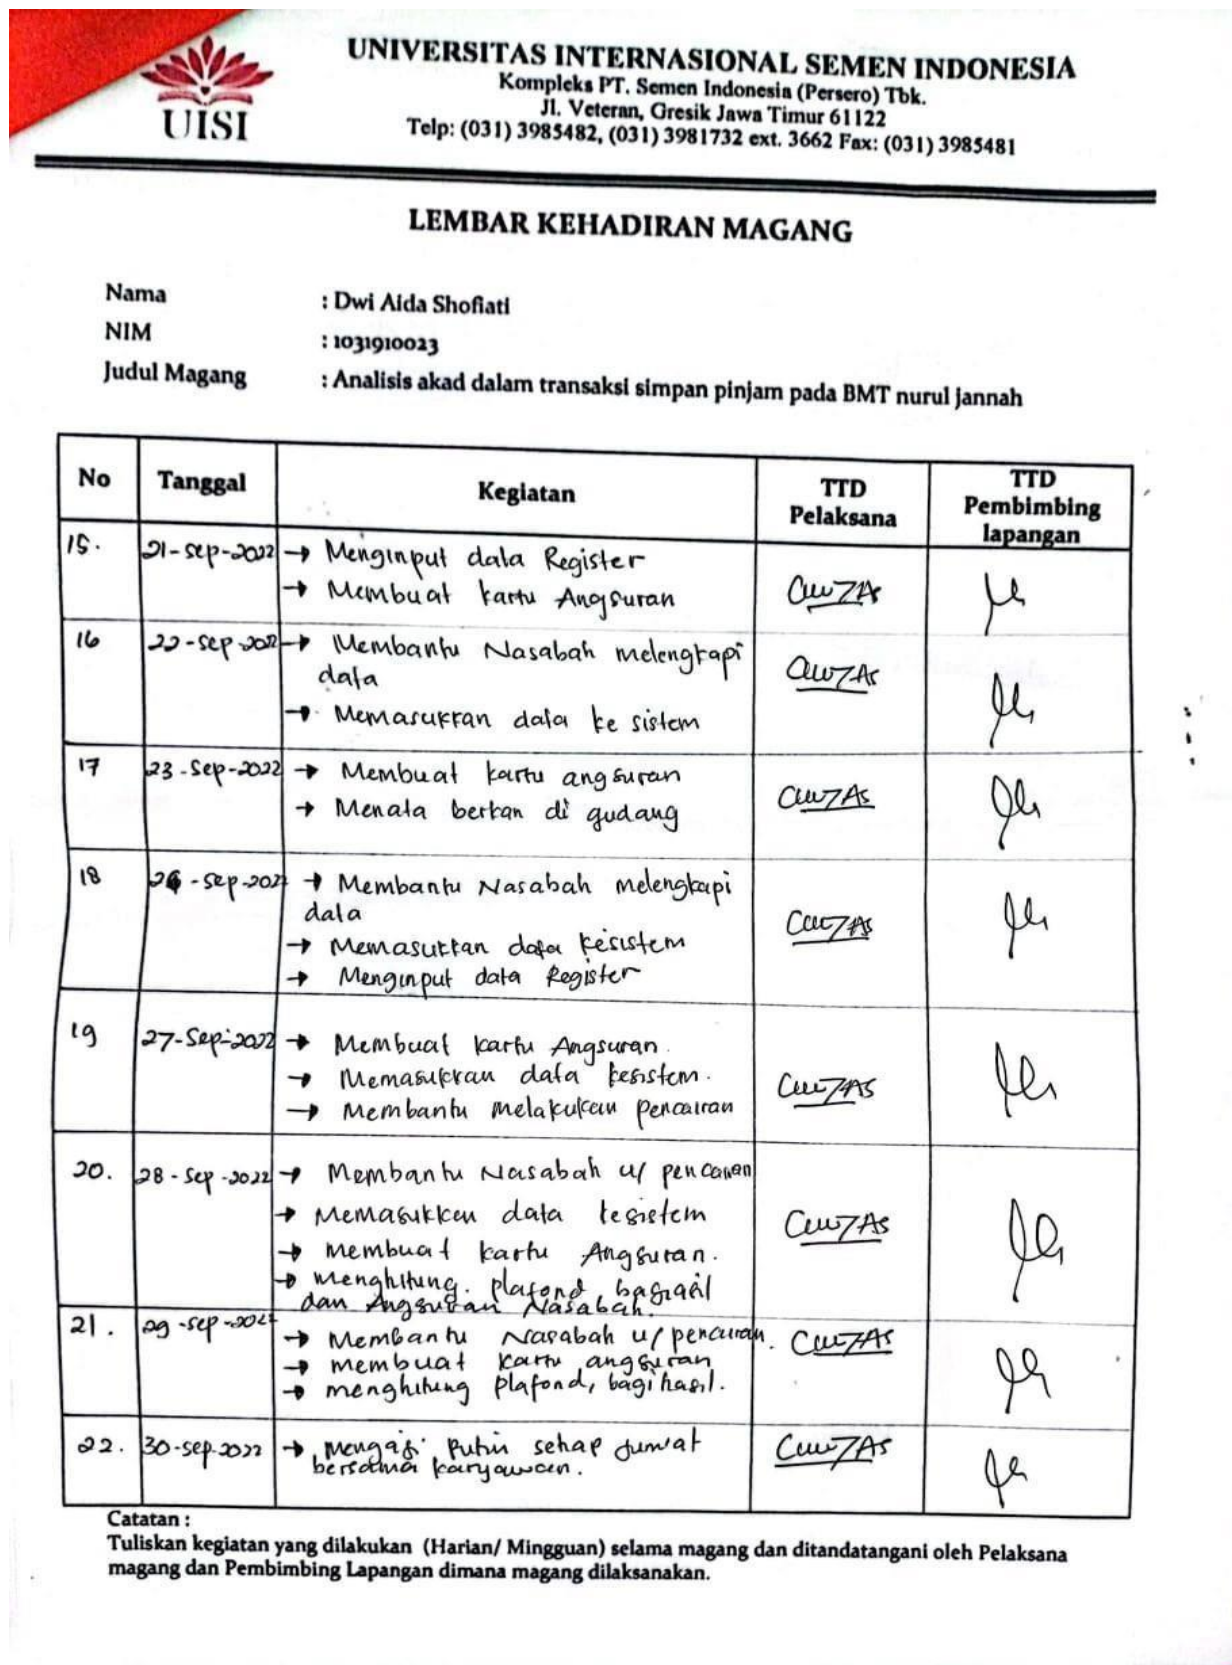 UISI
UNIVERSITAS INTERNASIONAL SEMEN INDONESIA
Kompleks PT. Semen Indonesia (Persero) Tbk.
Jl. Veteran, Gresik Jawa Timur 61122
Telp: (031) 3985482, (031) 3981732 ext. 3662 Fax: (031) 3985481
LEMBAR KEHADIRAN MAGANG
Nama : Dwi Aida Shofiati
NIM : 1031910023
Judul Magang : Analisis akad dalam transaksi simpan pinjam pada BMT nurul jannah
No Tanggal Kegiatan TTD Pelaksana TTD Pembimbing lapangan
15. 21-sep-2022 → Menginput data Register
→ Membuat kartu Angsuran
16 22-sep-2022 → Membantu Nasabah melengkapi
data
→ Memasukkan data ke sistem
17 23-Sep-2022 → Membuat kartu angsuran
→ Menata berkan di gudang
18 26-sep-2022 → Membantu Nasabah melengkapi
data
→ Memasukkan data kesistem
→ Menginput data Register
19 27-Sep-2022 → Membuat kartu Angsuran.
→ Memasukkan data kesistem.
→ Membantu melakukan pencairan
20. 28-Sep-2022 → Membantu Nasabah u/ pencairan
→ Memasukkan data kesistem
→ membuat kartu Angsuran.
→ menghitung. plafond, bagi hasil
dan Angsuran Nasabah.
21. 29-sep-2022 → Membantu Nasabah u/ pencairan.
→ membuat kartu angsuran
→ menghitung plafond, bagi hasil.
22. 30-sep-2022 → mengaji rutin setiap jum'at
bersama karyawan.
Catatan :
Tuliskan kegiatan yang dilakukan (Harian/ Mingguan) selama magang dan ditandatangani oleh Pelaksana
magang dan Pembimbing Lapangan dimana magang dilaksanakan.